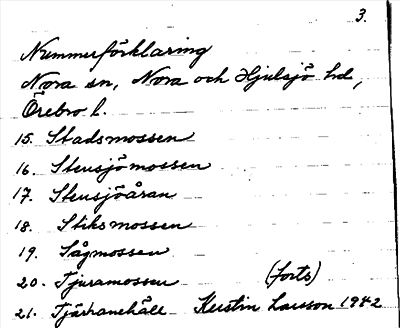 3.
Nummerförklaring
Nora sn, Nora och Hjulsjö hd,
Örebro l.
15. Stadsmossen
16. Stensjömossen
17. Stensjöåran
18. Stiksmossen
19. Sågmossen
20. Tjuramossen (forts)
21. Tjärhanehäll Kerstin Larsson 1942